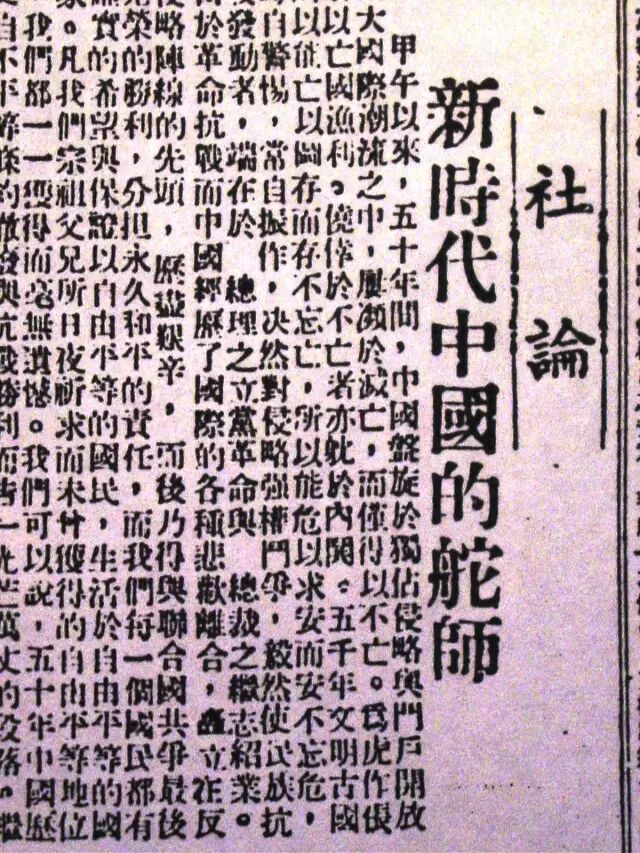 社論
新時代中國的舵師
甲午以來，五十年間，中國盤旋於獨佔侵略與門戶開放
大國際潮流之中，屢瀕於滅亡，而僅得以不亡。為虎作倀
以亡國漁利。僥倖於不亡者亦耽於內鬨。五千年文明古國
而能亡以圖存而存不忘亡，所以能危以求安而安不忘危，
自警惕，當自振作，决然對侵略强權鬥爭，毅然使民族抗
發動者，端在於 總理之立黨革命與 總裁之繼志紹業。
於革命抗戰而中國經歷了國際的各種悲歡離合，矗立在反
侵略陣線的先頭，歷盡艱辛，而後乃得與聯合國共爭最後
光榮的勝利，分担永久和平的責任，而我們每一個國民都有
確實的希望與保證以自由平等的國民，生活於自由平等的國
家。凡我們宗祖父兄所日夜祈求而未嘗獲得的自由平等地位
我們都一一獲得而毫無遺憾。我們可以說，五十年中國歷
自不平等條約的撤廢與抗戰勝利而告一光芒萬丈的段落。繼